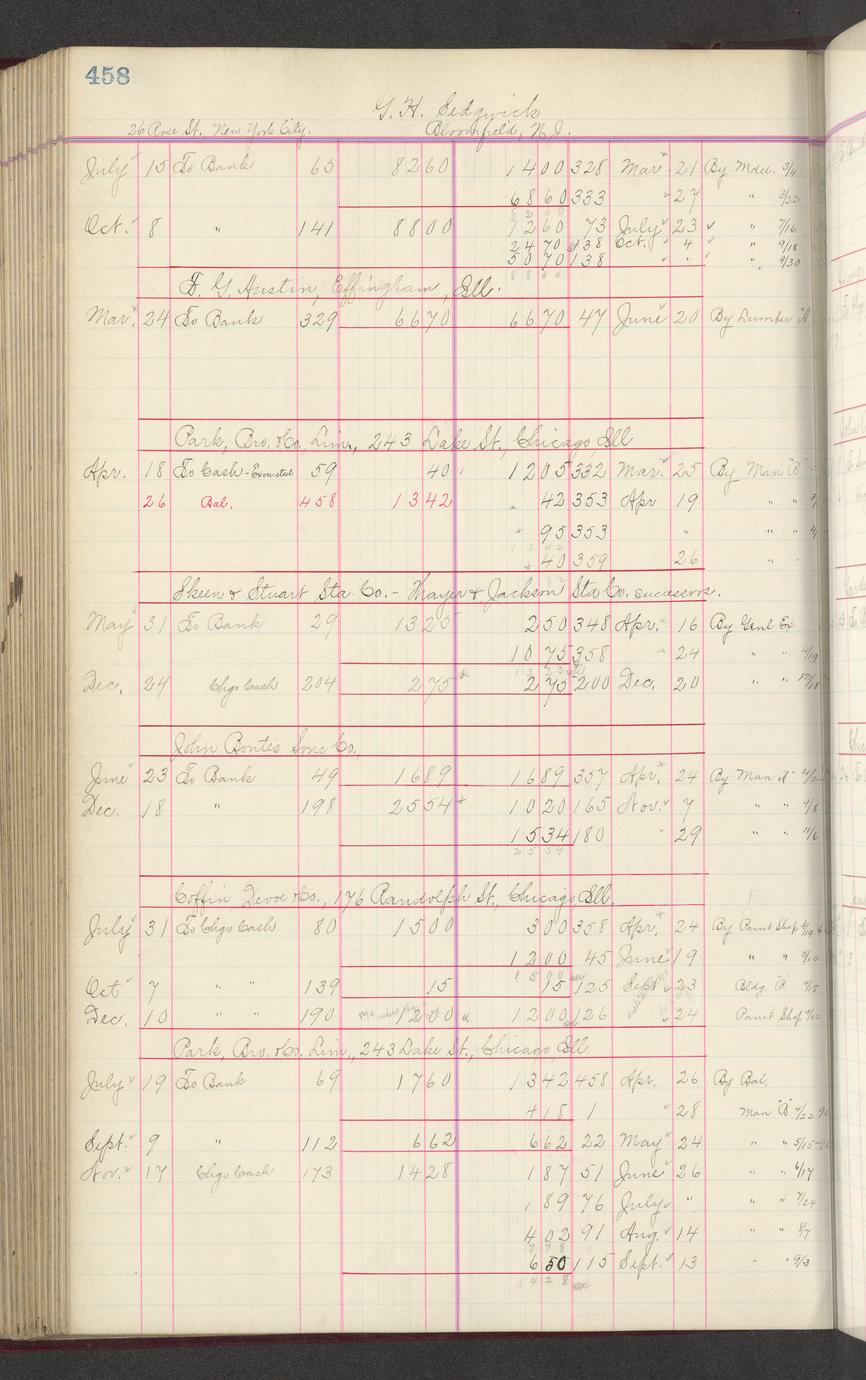 458
G. H. Sedgwick
26 Rose St., New York City. Bloomfield, N. J.
July 15 To Bank 65 8260 1400 328 Mar 21 By Mdse. 3/4
6860 333 " 27 " 3/22
8260
Oct. 8 " 141 8800 1260 73 July 23 " 7/16
2470 138 Oct. 4 " 9/18
5070 138 " " " 9/30
8800
F. G. Austin, Effingham, Ill.
Mar. 24 To Bank 329 6670 6670 47 June 20 By Lumber "A
Park, Bro. & Co., Lim., 243 Lake St., Chicago, Ill
Apr. 18 To Cash 59 40 1205 332 Mar. 25 By Man "B"
26 Bal. 458 1342 42 353 Apr 19 " "
95 353 " " "
1342
40 359 26 "
Skeen & Stuart Sta Co. - Thayer & Jackson Sta Co. successors.
May 31 To Bank 29 1325 250 348 Apr. 16 By Genl Ex
1075 358 " 24 " " 4/19
1325
Dec. 24 Chgo Cash 204 275 275 200 Dec. 20 " " 12/18
John Bonte's Sons Co.
June 23 To Bank 49 1689 1689 357 Apr. 24 By Man A
Dec. 18 " 198 2554 1020 165 Nov. 7 " "
1534 180 " 29 " " 11/6
2554
Coffin, Devoe & Co., 176 Randolph St., Chicago Ill.
July 31 To Chgo Cash 80 1500 300 358 Apr. 24 By Paint Shop 4/19
1200 45 June 19 " "
1500
Oct 7 " " 139 15 15 125 Sept 23 Bldg. "B" 9/18
Dec. 10 " " 190 1200 1200 126 24 Paint Shop 9/22
Park, Bro. & Co. Lim., 243 Lake St., Chicago Ill
July 19 To Bank 69 1760 1342 458 Apr. 26 By Bal.
418 1 " 28 Man "B" 4/22 90
Sept. 9 " 112 662 662 22 May 24 " " 5/15
Nov. 17 Chgo Cash 173 1428 187 51 June 26 " " 6/17
189 76 July " " " 7/24
402 91 Aug. 14 " " 8/7
778
650 115 Sept. 13 " " 9/3
1428